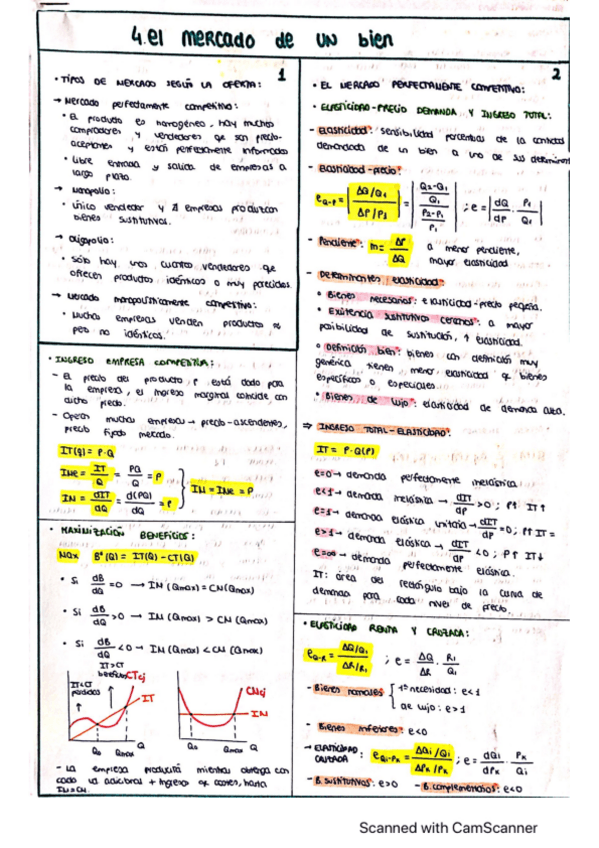 4.el mercado de un bien
1
• TIPOS DE MERCADO SEGÚN LA OFERTA:
→ Mercado perfectamente competitivo:
• El producto es homogéneo, hay muchos
compradores y vendedores que son precio-
aceptantes y están perfectamente informados
• Libre entrada y salida de empresas a
largo plazo.
→ Monopolio:
• Único vendedor y ∄ empresas produzcan
bienes sustitutivos.
→ Oligopolio:
• Sólo hay unos cuantos vendedores que
ofrecen productos idénticos o muy parecidos.
→ Mercado monopolísticamente competitivo:
• Mucha empresas venden productos
pero no idénticos.
• INGRESO EMPRESA COMPETITIVA:
- El precio del producto P está dado para
la empresa, el ingreso marginal coincide con
dicho precio.
- Operan muchas empresas → precio-
precio fijado mercado.
IT(Q) = P·Q
IMe = IT/Q = PQ/Q = P
IM = dIT/dQ = d(PQ)/dQ = P
IM = IMe = P
• MAXIMIZACIÓN BENEFICIOS:
Max Bº(Q) = IT(Q) - CT(Q)
• Si dB/dQ = 0 → IM (Qmax) = CM (Qmax)
• Si dB/dQ > 0 → IM (Qmax) > CM (Qmax)
• Si dB/dQ < 0 → IM (Qmax) < CM (Qmax)
IT>CT
beneficios
CTcj
IT<CT
pérdidas
IT
Q0 Qmax Q
CMcj
IM
Q0 Qmax Q
- La empresa producirá mientras obtenga con
cada ud adicional + ingreso q costes, hasta
IM=CM.
2
• EL MERCADO PERFECTAMENTE COMPETITIVO:
• ELASTICIDAD-PRECIO DEMANDA Y INGRESO TOTAL:
- Elasticidad: sensibilidad porcentual de la cantidad
demandada de un bien a uno de sus determin
- Elasticidad-precio:
eQ-P = |ΔQ/Q1 / ΔP/P1| = |Q2-Q1/Q1 / P2-P1/P1| ; e = |dQ/dP · P1/Q1|
- Pendiente: m = ΔP/ΔQ a menor pendiente,
mayor elasticidad
- Determinantes elasticidad:
• Bienes necesarios: elasticidad-precio pequeña.
• Existencia sustitutivos cercanos: a mayor
posibilidad de sustitución, ↑ elasticidad.
• Definición bien: bienes con definición muy
genérica tienen menor elasticidad q bienes
específicos o especiales.
• Bienes de lujo: elasticidad de demanda alta.
⇒ INGRESO TOTAL-ELASTICIDAD:
IT = P·Q(P)
e=0 → demanda perfectamente inelástica
e<1 → demanda inelástica → dIT/dP >0 ; P↑ IT↑
e=1 → demanda elástica unitaria → dIT/dP =0; P↑ IT=
e>1 → demanda elástica → dIT/dP <0 ; P↑ IT↓
e=∞ → demanda perfectamente elástica.
IT: área del rectángulo bajo la curva de
demanda para cada nivel de precio.
• ELASTICIDAD RENTA Y CRUZADA:
eQ-R = ΔQ/Q1 / ΔR/R1 ; e = ΔQ/ΔR · R1/Q1
- Bienes normales { 1ª necesidad: e<1
de lujo: e>1
- Bienes inferiores: e<0
→ ELASTICIDAD CRUZADA: eQi-PK = ΔQi/Qi / ΔPK/PK ; e = dQi/dPK · PK/Qi
- B. sustitutivos: e>0 - B. complementarios: e<0
Scanned with CamScanner